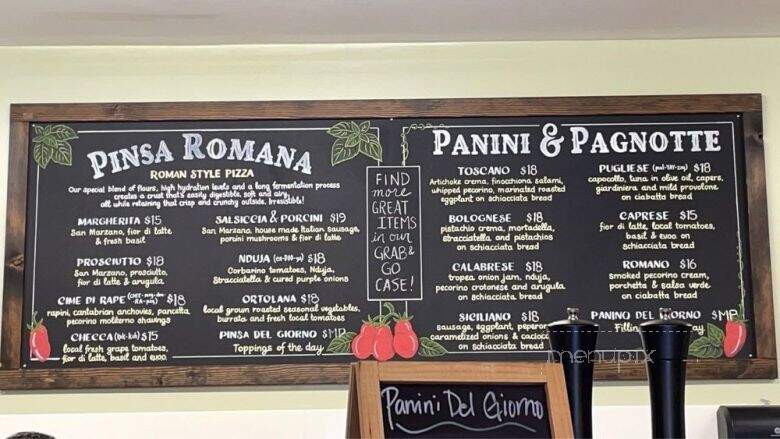 PINSA ROMANA
ROMAN STYLE PIZZA
Our special blend of flours, high hydration levels and a long fermentation process
creates a crust that's easily digestible, soft and airy,
all while retaining that crisp and crunchy outside. Irresistible!
MARGHERITA $15
San Marzano, fior di latte
& fresh basil
PROSCIUTTO $18
San Marzano, prosciutto,
fior di latte & arugula
CIME DI RAPE $18
rapini, cantabrian anchovies, pancetta,
pecorino moliterno shavings
CHECCA $15
local fresh grape tomatoes,
fior di latte, basil and evoo.
SALSICCIA & PORCINI $19
San Marzano, house made Italian sausage,
porcini mushrooms & fior di latte
NDUJA $18
Corbarino tomatoes, Nduja,
Stracciatella & cured purple onions
ORTOLANA $18
local grown roasted seasonal vegetables,
burrata and fresh local tomatoes
PINSA DEL GIORNO $MP
Toppings of the day
FIND
more
GREAT
ITEMS
in our
GRAB &
GO
CASE!
PANINI & PAGNOTTE
TOSCANO $18
Artichoke crema, finocchiona salami,
whipped pecorino, marinated roasted
eggplant on schiacciata bread
BOLOGNESE $18
pistachio crema, mortadella,
stracciatella, and pistachios
on schiacciata bread
CALABRESE $18
tropea onion jam, nduja,
pecorino crotonese and arugula
on schiacciata bread
SICILIANO $18
sausage, eggplant,
caramelized onions &
on schiacciata bread
PUGLIESE $18
capocollo, tuna in olive oil, capers,
giardiniera and mild provolone
on ciabatta bread
CAPRESE $15
fior di latte, local tomato,
basil & evoo on
schiacciata bread
ROMANO $16
smoked pecorino cream,
porchetta & salsa verde
on ciabatta bread
PANINO DEL GIORNO $MP
menupix
Panini Del Giorno